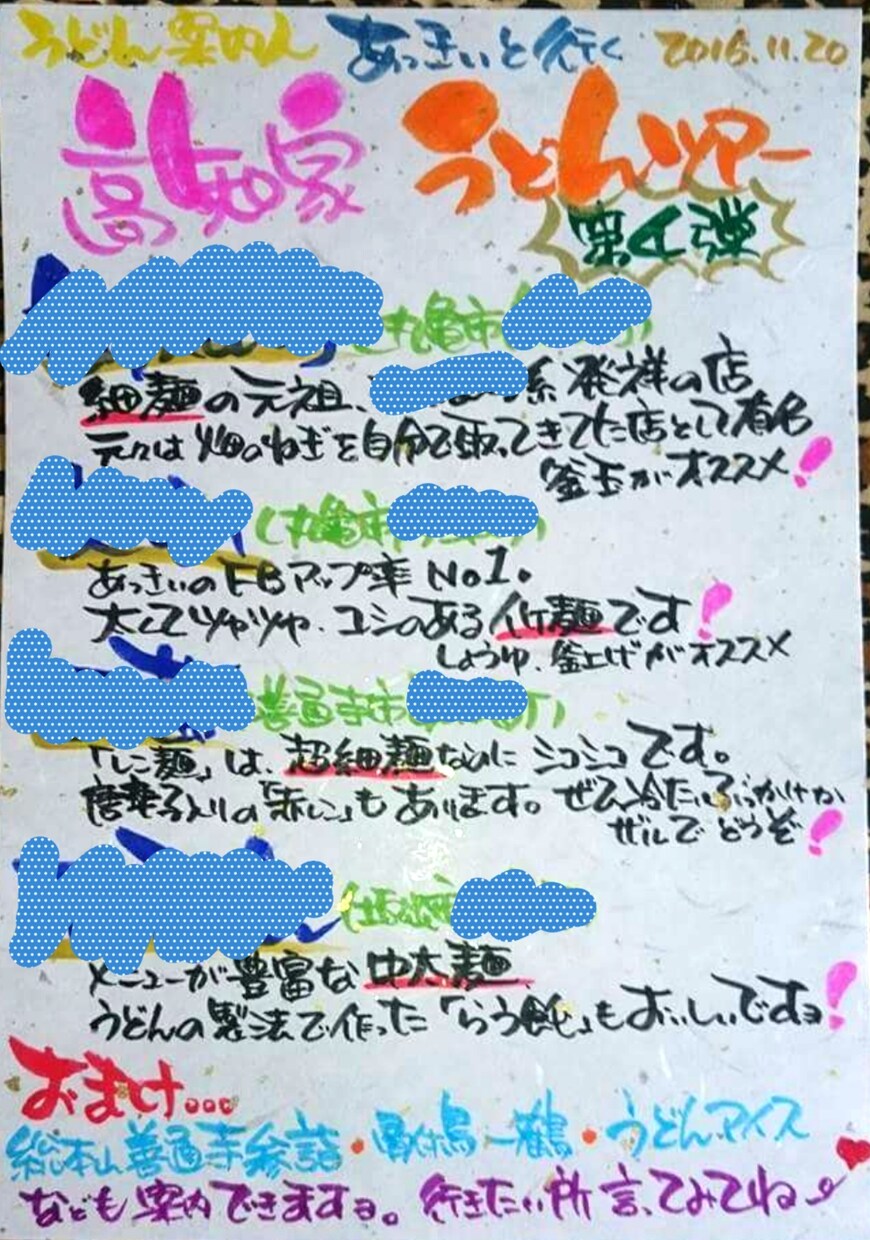 うどん案内人 あっきいと行く 2016.11.20
高知家 うどんツアー
第4弾
(丸亀市
細麺の元祖、 系発祥の店
元々は畑のねぎを自分で取ってきてた店として有名
釜玉がオススメ!
(丸亀市
あっきいのFBアップ率No1。
太くてツヤツヤ、コシのある
麺です!
しょうゆ、釜上げがオススメ
善通寺市
「しこ麺」は、超細麺なのにシコシコです。
唐辛子入りの「赤しこ」もあります。ぜひ冷たいぶっかけか
ザルでどうぞ!
(坂出市
メニューが豊富な中太麺、
うどんの製法で作った「らう飩」もおいしいですョ!
おまけ...
総本山善通寺参詣・骨付鳥一鶴・うどんアイス
なども案内できますョ。行きたい所言ってみてね